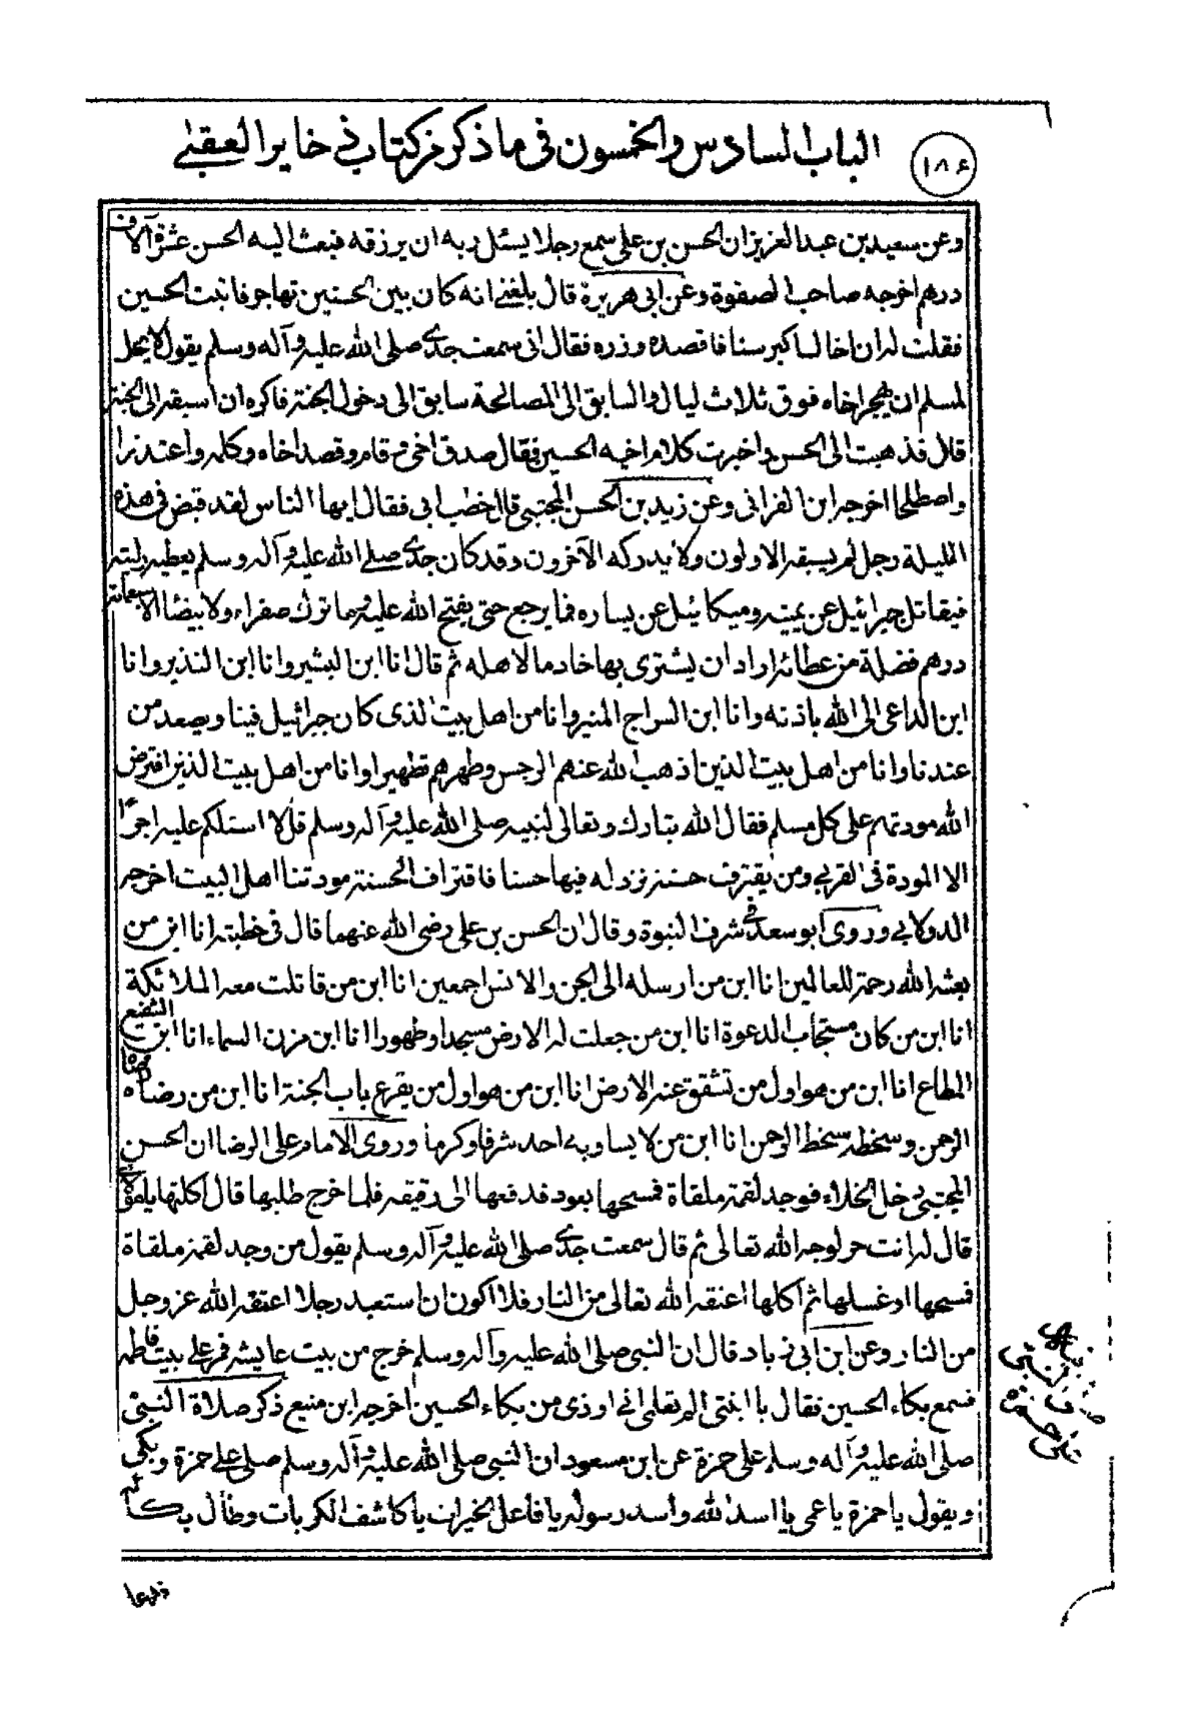 الباب السادس والخمسون فى ما ذكر من كتاب ذخاير العقبى
١٨٤
وعن سعيد بن عبد العزيز ان الحسن بن على سمع رجلا يسئل ربه ان يرزقه فبعث اليه الحسن عشرة آلاف
درهم اخرجه صاحب الصفوة وعن ابى هريرة قال بلغنى انه كان بين الحسنين تهاجر فاتيت الحسين
فقلت له ان اخاك اكبر سنا فاقصده وزره فقال انى سمعت جدى صلى الله عليه وآله وسلم يقول لا يحل
لمسلم ان يهجر اخاه فوق ثلاث ليال والسابق الى المصالحة سابق الى دخول الجنة فاكره ان اسبقه الى الجنة
قال فذهبت الى الحسن واخبرت كلام اخيه الحسين فقال صدق اخى ثم قام وقصد اخاه وكلمه واعتذرا
واصطلحا اخرجه ابن الفرانى وعن زيد بن الحسن المجتبى قال خطب ابى فقال ايها الناس لقد قبض فى هذه
الليلة رجل لم يسبقه الاولون ولا يدركه الآخرون وقد كان جدى صلى الله عليه وآله وسلم يعطيه رايته
فيقاتل جبرائيل عن يمينه وميكائيل عن يساره فما يرجع حتى يفتح الله عليه وما ترك صفراء ولا بيضا الا سبعمائة
درهم فضلة من عطائه اراد ان يشترى بها خادما لاهله ثم قال انا ابن البشير وانا ابن النذير وانا
ابن الداعى الى الله باذنه وانا ابن السراج المنير وانا من اهل بيت الذى كان جبرائيل فينا ويصعد من
عندنا وانا من اهل بيت الذين اذهب الله عنهم الرجس وطهرهم تطهيرا وانا من اهل بيت الذين افترض
الله مودتهم على كل مسلم فقال الله تبارك وتعالى لنبيه صلى الله عليه وآله وسلم قل لا اسئلكم عليه اجرًا
الا المودة فى القربى ومن يقترف حسنة نزد له فيها حسنا فاقتراف الحسنة مودتنا اهل البيت اخرجه
الدولابى وروى ابو سعد فى شرف النبوة وقال ان الحسن بن على رضى الله عنهما قال فى خطبته انا ابن من
بعثه الله رحمة للعالمين انا ابن من ارسله الى الجن والانس اجمعين انا ابن من قاتلت معه الملائكة
انا ابن من كان مستجاب الدعوة انا ابن من جعلت له الارض مسجدا وطهورا انا ابن مزن السماء انا ابن الشفيع
المطاع انا ابن من هو اول من تشقق عنه الارض انا ابن من هو اول من يقرع باب الجنة انا ابن من رضاه رضا
الرحمن وسخطه سخط الرحمن انا ابن من لا يساويه احد شرفا وكرما وروى الامام على الرضا ان الحسن
المجتبى دخل الخلاء فوجد لقمة ملقاة فمسحها بعود فدفعها الى رقيقه فلما خرج طلبها قال اكلتها يا مولاى
قال له انت حر لوجه الله تعالى ثم قال سمعت جدى صلى الله عليه وآله وسلم يقول من وجد لقمة ملقاة
فمسحها او غسلها ثم اكلها اعتقه الله تعالى من النار فلا اكون ان استعبد رجلا اعتقه الله عز وجل
من النار وعن ابن ابى زياد قال ان النبى صلى الله عليه وآله وسلم خرج من بيت عايشه فمر على بيت فاطمه
فسمع بكاء الحسين فقال يا ابنتى الم تعلمى انى اوذى من بكاء الحسين اخرجه ابن منيع ذكر صلاة النبى
صلى الله عليه وآله وسلم على حمزة عن ابن مسعود ان النبى صلى الله عليه وآله وسلم صلى على حمزة وبكى
ويقول يا حمزة يا عمى يا اسد الله واسد رسوله يا فاعل الخيرات يا كاشف الكربات وطال بكائه
النبى
على حمزة